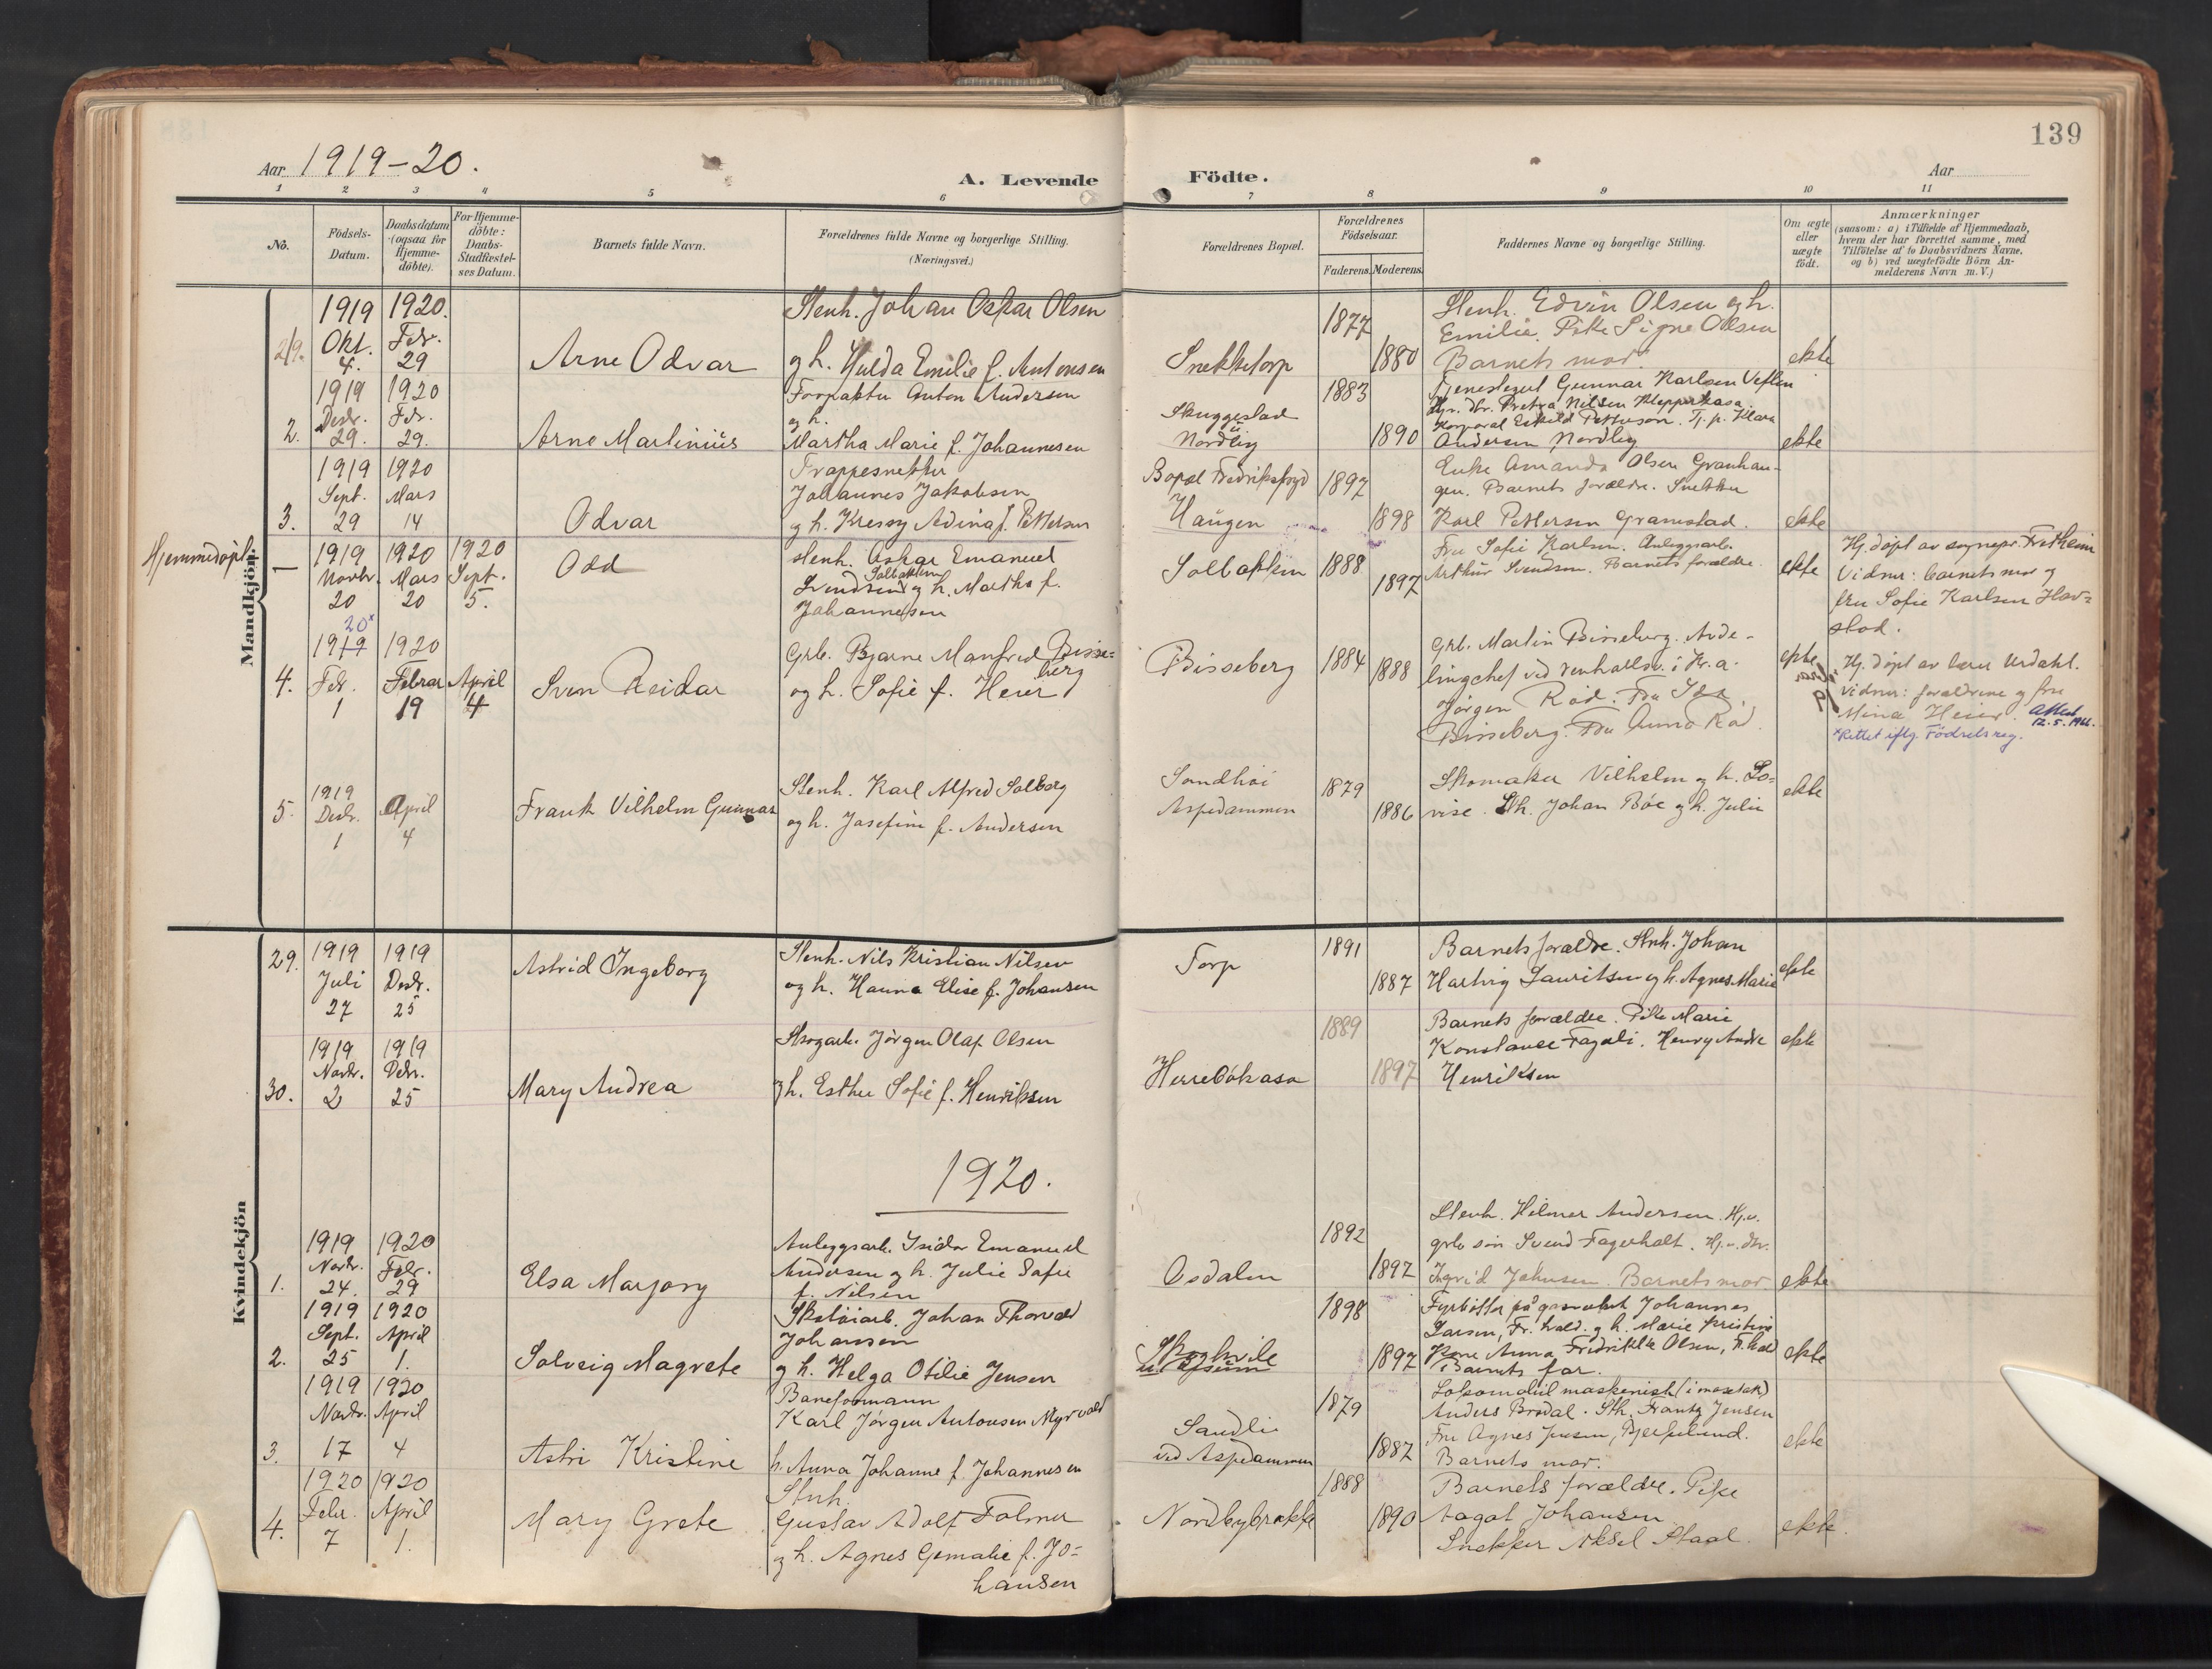 139
Aar 1919-20.
A. Levende Födte.
Aar
1 2 3 4 5 6 7 8 9 10 11
No.
Födsels-
Datum.
Daabsdatum
(ogsaa for
Hjemme-
döbte).
For Hjemme-
döbte:
Daabs-
Stadfæstel-
ses Datum.
Barnets fulde Navn.
Forældrenes fulde Navne og borgerlige Stilling.
(Næringsvei.)
Forældrenes Bopæl.
Forældrenes
Födselsaar.
Faderens. Moderens.
Faddernes Navne og borgerlige Stilling.
Om ægte
eller
uægte
födt.
Anmærkninger
(saasom: a) i Tilfælde af Hjemmedaab,
hvem der har forrettet samme, med
Tilföielse af to Daabsvidners Navne,
og b) ved uægtefödte Börn An-
melderens Navn m. V.)
Mandkjön.
1919 1920.
Okt. Febr.
4. 29
Arne Odvar
Stenh. Johan Oskar Olsen
og h. Hulda Emilie f. Antonsen
Snekketorp
1877
1880
Stenh. Edvin Olsen og h.
Emilie. Pike Signe Olsen
Barnets mor.
ekte
2.
1919 1920
Decbr. Febr.
29. 29.
Arne Martinius
Forpakter Anton Andersen
og h.
Martha Marie f. Johannesen
Skuggestad
Nordlig
1883
1890
Tjenestegut Gunnar Karlsen Veften
Nilsen Klepperkasa.
Korporal Eskild Pettersen. Tj. p. Klara
Andersen Nordlig
ekte
3.
1919 1920
Sept. Mars
29 14
Odvar
Trappesnekker
Johannes Jakobsen
og h. Kressy Adina f. Pettersen
Bopæl Fredrikshald
Haugen
1897
1898
Enke Amanda Olsen Granhau-
gen. Barnets forældre. Snekker
Karl Pettersen Granestad.
ekte
Hjemmedøpt.
—
1919 1920 1920
Novbr. Mars Sept.
20 20 5.
Odd
Stenh. Oskar Emanuel
Solbakken
Svendsen og h. Martha f.
Johannesen
Solbakken
1888
1897
Fru Sofie Karlsen. Anlegsarb.
Arthur Svendsen. Barnets forældre.
ekte
Hj. døpt av sognepr. Fretheim
Vidner: barnets mor og
fru Sofie Karlsen Hov-
stad.
4.
20x
1919 1920
Febr. Februar April
1 19 4
Sven Reidar
Grb. Bjarne Manfred Bisse-
berg
og h. Sofie f. Heier
Bisseberg
1884
1888
Grb. Martin Bisseberg. Avde-
lingchef ved renholdsv. i Kr.a.
Jørgen Rød. Fru Ida
Bisseberg. Fru Anna Rød.
ekte
Hj. døpt av lærer Urdahl.
Vidner: forældrene og fru
Mina Heier. Attest
12.5.1944.
xRettet iflg. Fødselsreg.
5.
1919
Decbr. April
1 4
Frank Vilhelm Gunnar
Stenh. Karl Alfred Solberg
og h. Josefine f. Andersen
Sandhøi
Aspedammen
1879
1886
Skomaker Vilhelm og h. Lo-
vise. Sth. Johan Bøe og h. Julie
ekte
Kvindekjön
29.
1919 1919
Juli Decbr.
27 25
Astrid Ingeborg
Stenh. Nils Kristian Nilsen
og h. Hanna Elise f. Johansen
Torp
1891
1887
Barnets forældre. Stnh. Johan
Hartvig Lauritsen og h. Agnes Marie
ekte
30.
1919 1919
Novbr. Debr.
2 25
Mary Andrea
Skogarb. Jørgen Olaf Olsen
og h. Esther Sofie f. Henriksen
Herrebøkasa
1889
1897
Barnets forældre. Pike Marie
Konstance Fagerli. Henry Andre
Henriksen
ekte
1920.
1.
1919 1920
Novbr. Febr.
24. 29
Elsa Marjory
Anleggsarb. Isidor Emanuel
Andersen og h. Julie Sofie
f. Nilsen
Osdalen
1892
1897
Stenh. Hilmer Andersen. Hj.v.
grb søn Svend Fagerholt. Hj.v. dtr.
Ingrid Johnsen. Barnets mor
ekte
2.
1919 1920
Sept. April
25 1.
Solveig Magrete
Skotøiarb. Johan Thorvald
Johansen
og h. Helga Otilie Jensen
Skoghvile
1898
1897
Fyrbøter på gasverket Johannes
Larsen, Fr.hald. og h. Marie Kristine
Kone Anna Fredrikke Olsen, Fr.hald
Barnets far.
ekte
3.
1919 1920
Novbr. April
17 4
Astri Kristine
Baneformann
Karl Jørgen Antonsen Myrvold
h. Anna Johanne f. Johannesen
Sandli
ved Aspedammen
1879
1887
Lokomobil maskenist
Anders Brødal. Sth. Frantz Jensen
Fru Agnes Jensen, Bjerkelund.
Barnets mor.
ekte
4.
1920 1920
Febr. April
7 1.
Mary Grete
Stnh.
Gustav Adolf Folmer
og h. Agnes Gemalie f. Jo-
hansen
Nordbybrække
1888
1890
Barnets forældre. Pike
Aagot Johansen
Snekker Aksel Staal.
ekte.